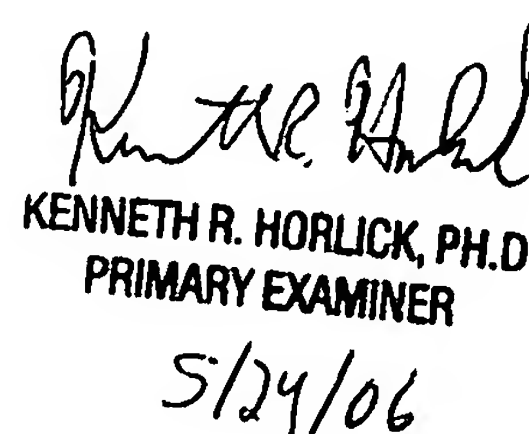 Kenneth R. Horlick
KENNETH R. HORLICK, PH.D
PRIMARY EXAMINER
5/24/06